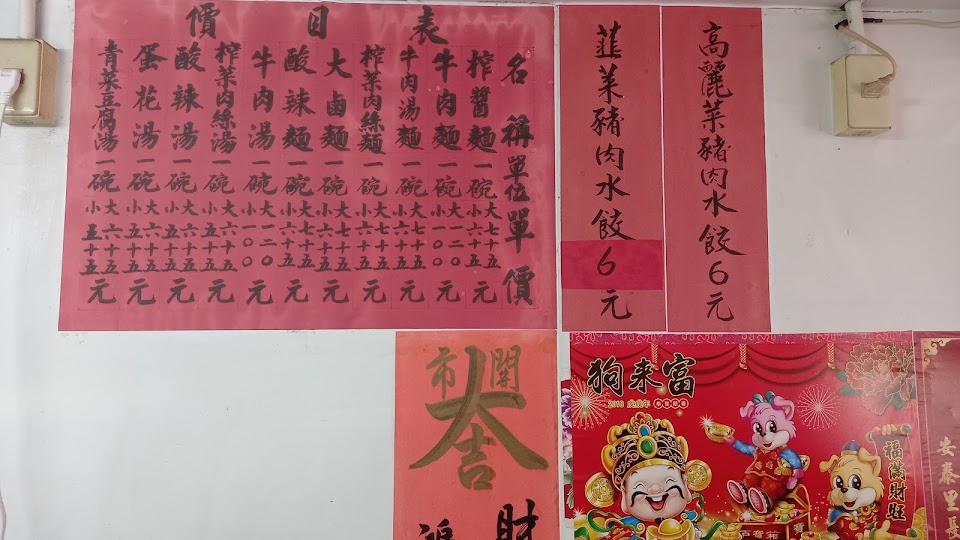 價目表
名稱單位單價
榨醬麵一碗大七十五小六十五元
牛肉麵一碗大一二〇小一〇〇元
牛肉湯麵一碗大七十五小六十五元
榨菜肉絲麵一碗大七十五小六十五元
大鹵麵一碗大七十五小六十五元
酸辣麵一碗大七十五小六十五元
牛肉湯一碗大一二〇小一〇〇元
榨菜肉絲湯一碗大六十五小五十五元
酸辣湯一碗大六十五小五十五元
蛋花湯一碗大六十五小五十五元
青菜豆腐湯一碗大六十五小五十五元
高麗菜豬肉水餃6元
韮菜豬肉水餃6元
開市大吉
財
福
狗来富
2018 戊戌年
福滿財旺
安泰里長